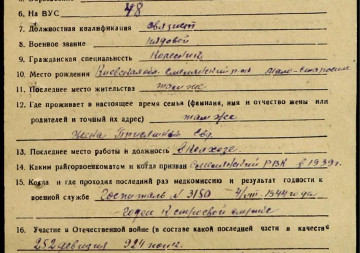 6. На ВУС 48
7. Должностная квалификация связист
8. Военное звание рядовой
9. Гражданская специальность
10. Место рождения Киевская обл. Смелянский р-н Мало-
11. Последнее место жительства там же
12. Где проживает в настоящее время семья (фамилия, имя и отчество жены или
родителей и точный их адрес) там же
жена
13. Последнее место работы и должность в колхозе
14. Каким райгорвоенкоматом и когда призван Смелянский РВК в 1939 г.
15. Когда и где проходил последний раз медкомиссию и результат годности к
военной службе Госпиталь N 3180 1944 года
годен к строевой службе
16. Участие в Отечественной войне (в составе какой последней части и качестве)
252 дивизия 924 полк.